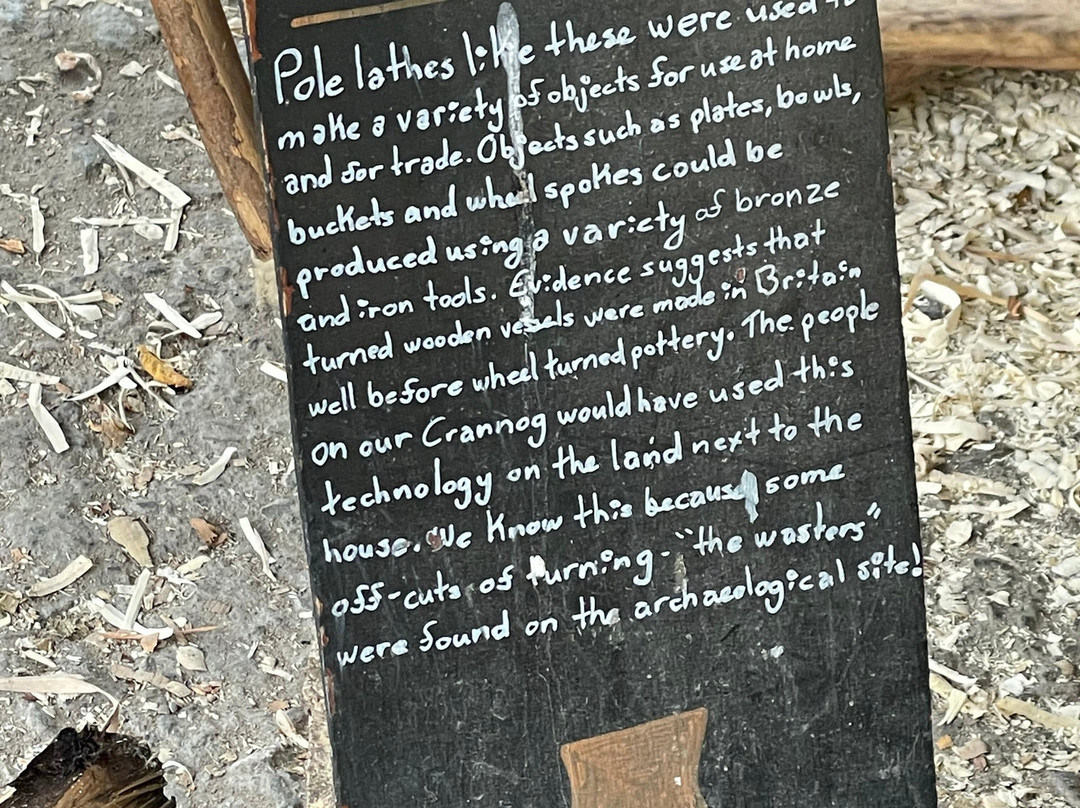 Pole lathes like these were used to
make a variety of objects for use at home
and for trade. Objects such as plates, bowls,
buckets and wheel spokes could be
produced using a variety of bronze
and iron tools. Evidence suggests that
turned wooden vessels were made in Britain
well before wheel turned pottery. The people
on our Crannog would have used this
technology on the land next to the
house. We know this because some
off-cuts of turning - "the wasters"
were found on the archaeological site!